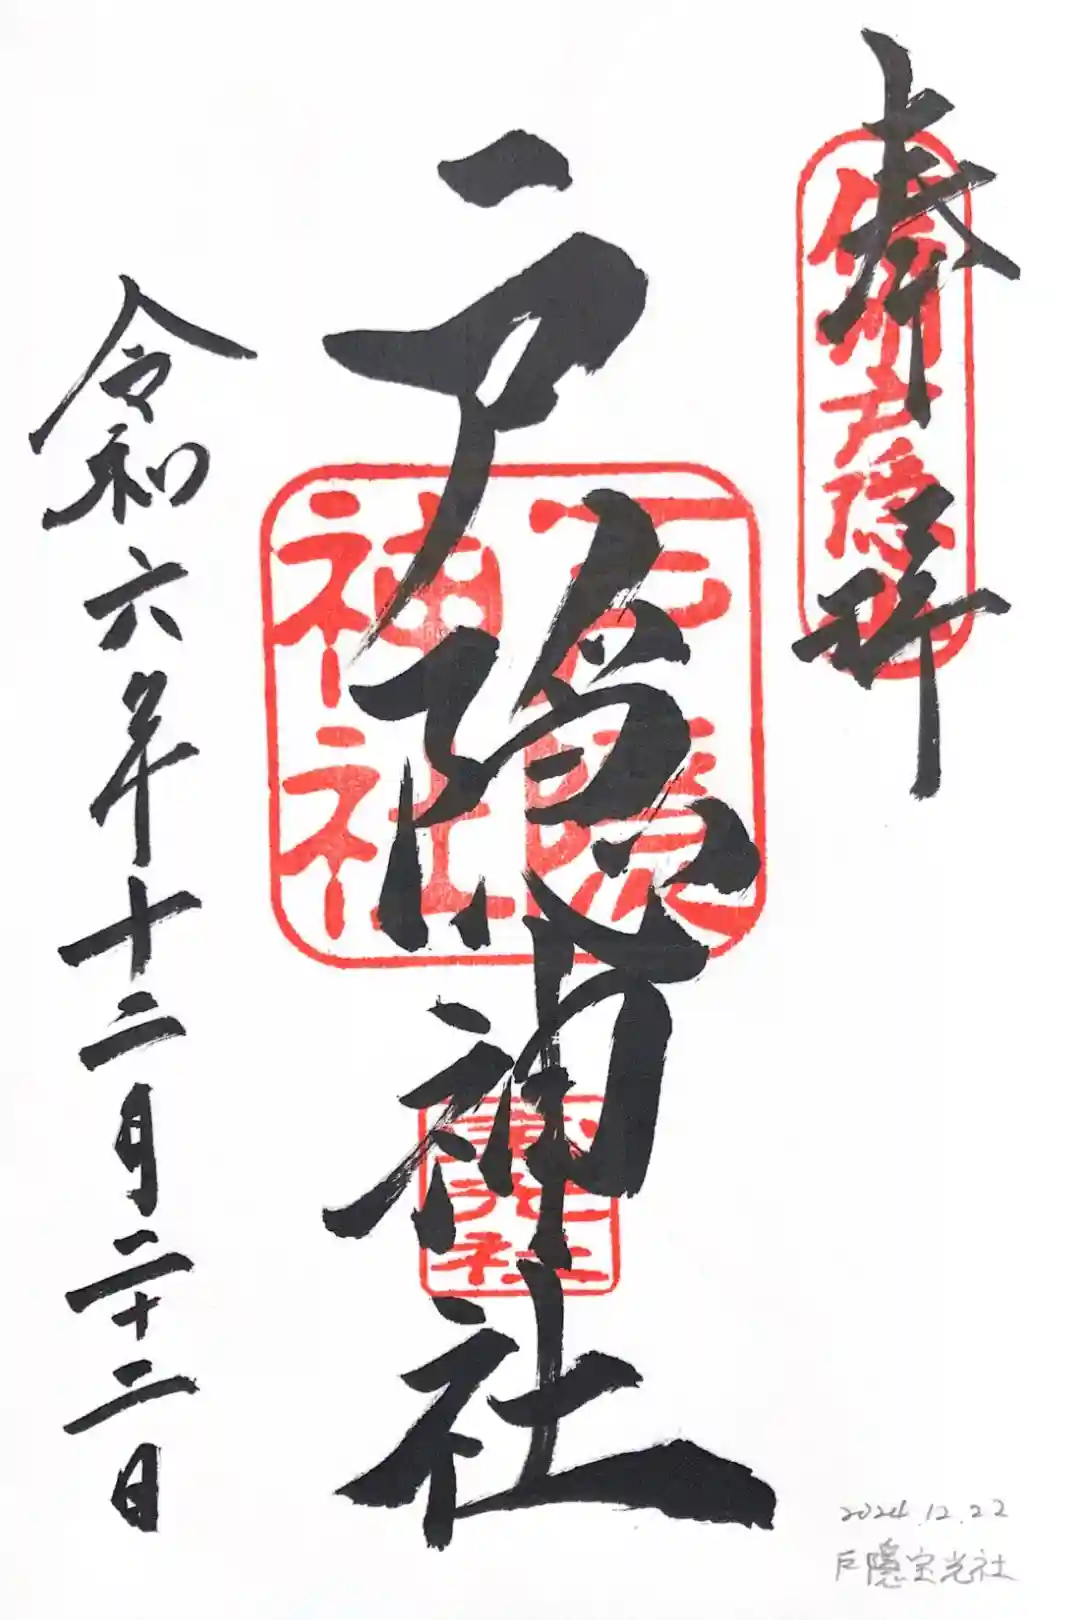 奉拝
信州戸隠山
戸隠神社
戸隠
神社
寶光社
令和六年十二月二十二日
2024.12.22
戸隠宝光社